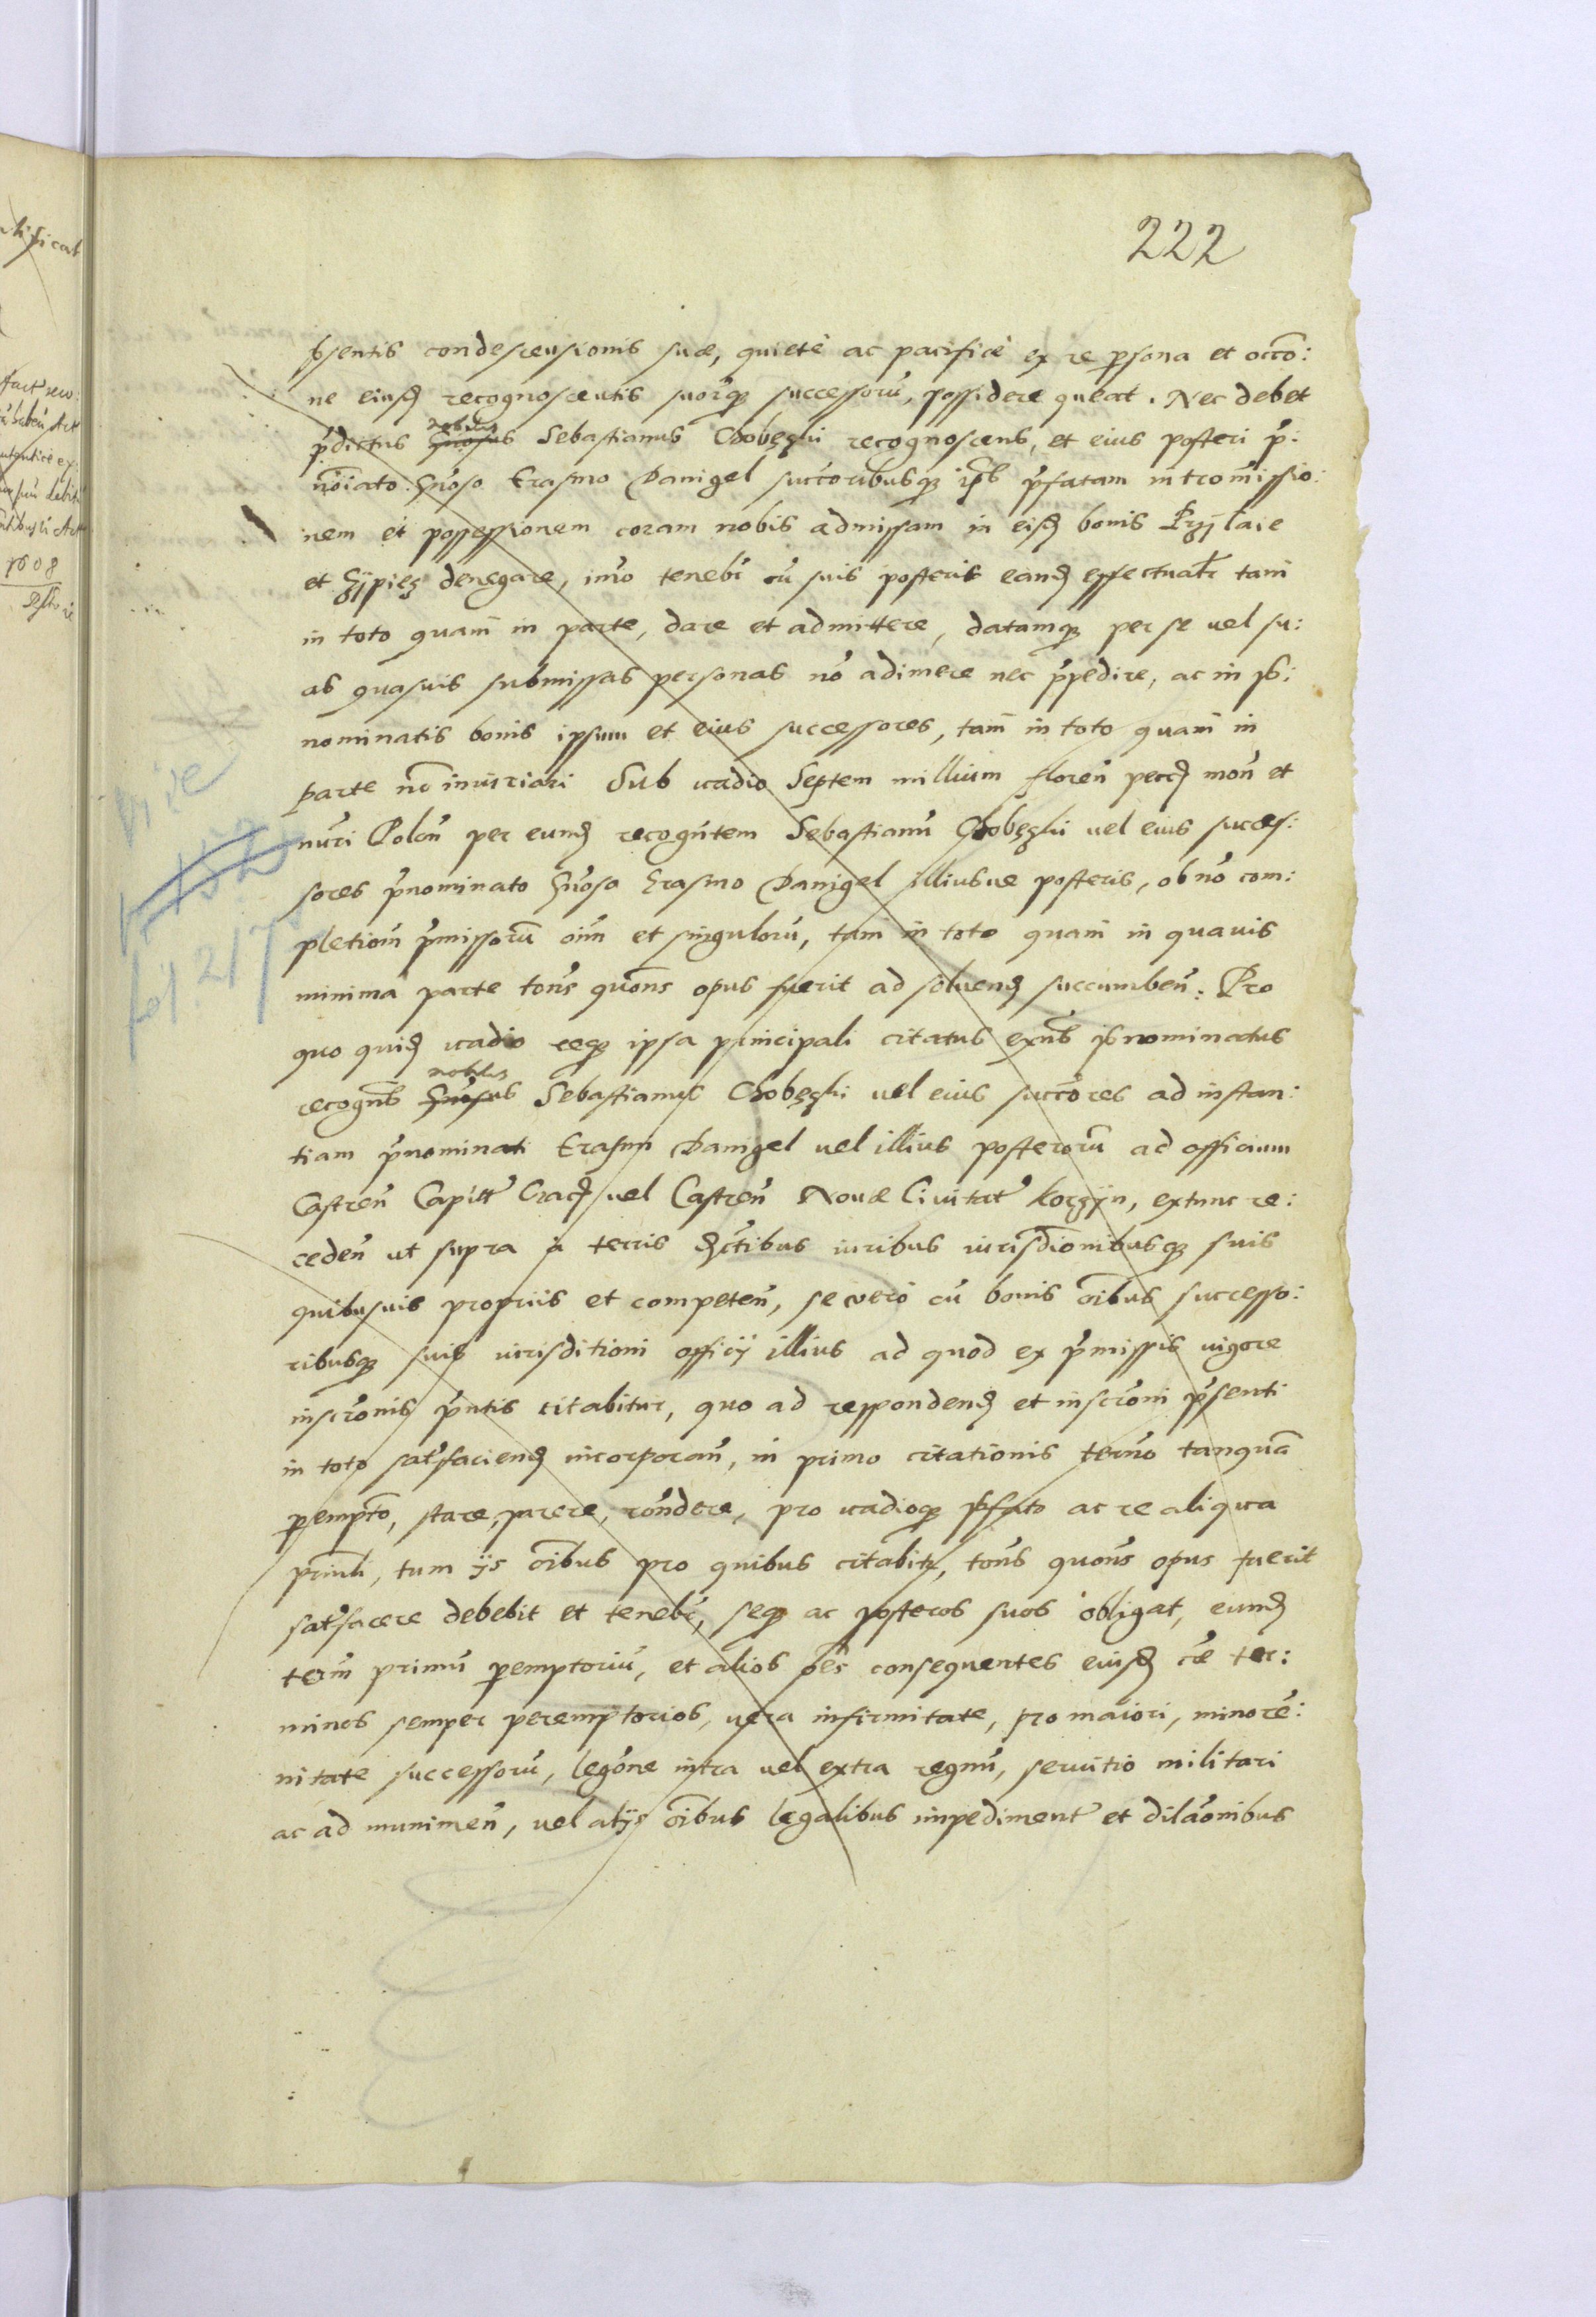 222
psentis condescensionis suæ, quietè ac pacificè ex re psona et occõ:
ne eiusd recognoscentis suorq successorũ, possidere queat. Nec debet
pdictus Gnosus nobilis Sebastianus Chobęski recognoscens, et eius posteri p:
noĩato Gnoso Erasmo Danigel succoribusq ipš pfatam intromissio:
nem et possessionem coram nobis admissam in eisd bonis
et denegare, imo tenebr cũ suis posteris eand effectualr tam
in toto quam in parte, dare et admittere, datamq per se uel su:
as quasuis submissas personas nõ adimere nec ppedire, ac in ps:
nominatis bonis ipsum et eius successores, tam in toto quam in
parte nõ iniuriari Sub uadio Septem millium floren pecc mon et
nuri Polon per eumd recognтem Sebastianũ Chobęski uel eius succes:
sores pnominato Gnoso Erasmo Danigel illiusue posteris, ob nõ com:
pletiom pmissorũ oim et singulorũ, tam in toto quam in quauis
minima parte tons quons opus fuerit ad soluend succumben: Pro
quo quid uadio reqp ipsa principali citatus exns psnominatus
recogns Gnosus nobilis Sebastianus Chobęski uel eius succores ad instan:
tiam pnominati Erasmi Danigel uel illius posterorũ ad officium
Castren Capitt Crac uel Castren Nouæ Ciuitat Korczÿn, extunc re:
ceden ut supra à terris dictibus iuribus iurisdionibusq suis
quibusuis proprijs et competen, se verò cũ bonis oĩbus successo:
ribusq suis iurisditioni officij illius ad quod ex pmissis uigore
inscronis pntis citabitur, quo ad respondend et inscroni psenti
in toto satsfaciend incorporan, in primo citationis termo tanquã
pempto, stare, parere, rondere, pro uadioq psfato ac re aliqua
prinli, tum ijs oĩbus pro quibus citabitr, tons quons opus fuerit
satsfacere debebit et tenebr, seq ac posteros suos obligat, eumd
term primũ pemptoriũ, et alios oẽs consequentes eiusd cæ ter:
minos semper peremptorios, uera infirmitate, pro maiori, minorẽ:
nitate successorũ, legõne intra uel extra regnũ, seruitio militari
ac ad munimen, uel alijs oĩbus legalibus impediment et dilaõnibus
vide
fol 217
1608